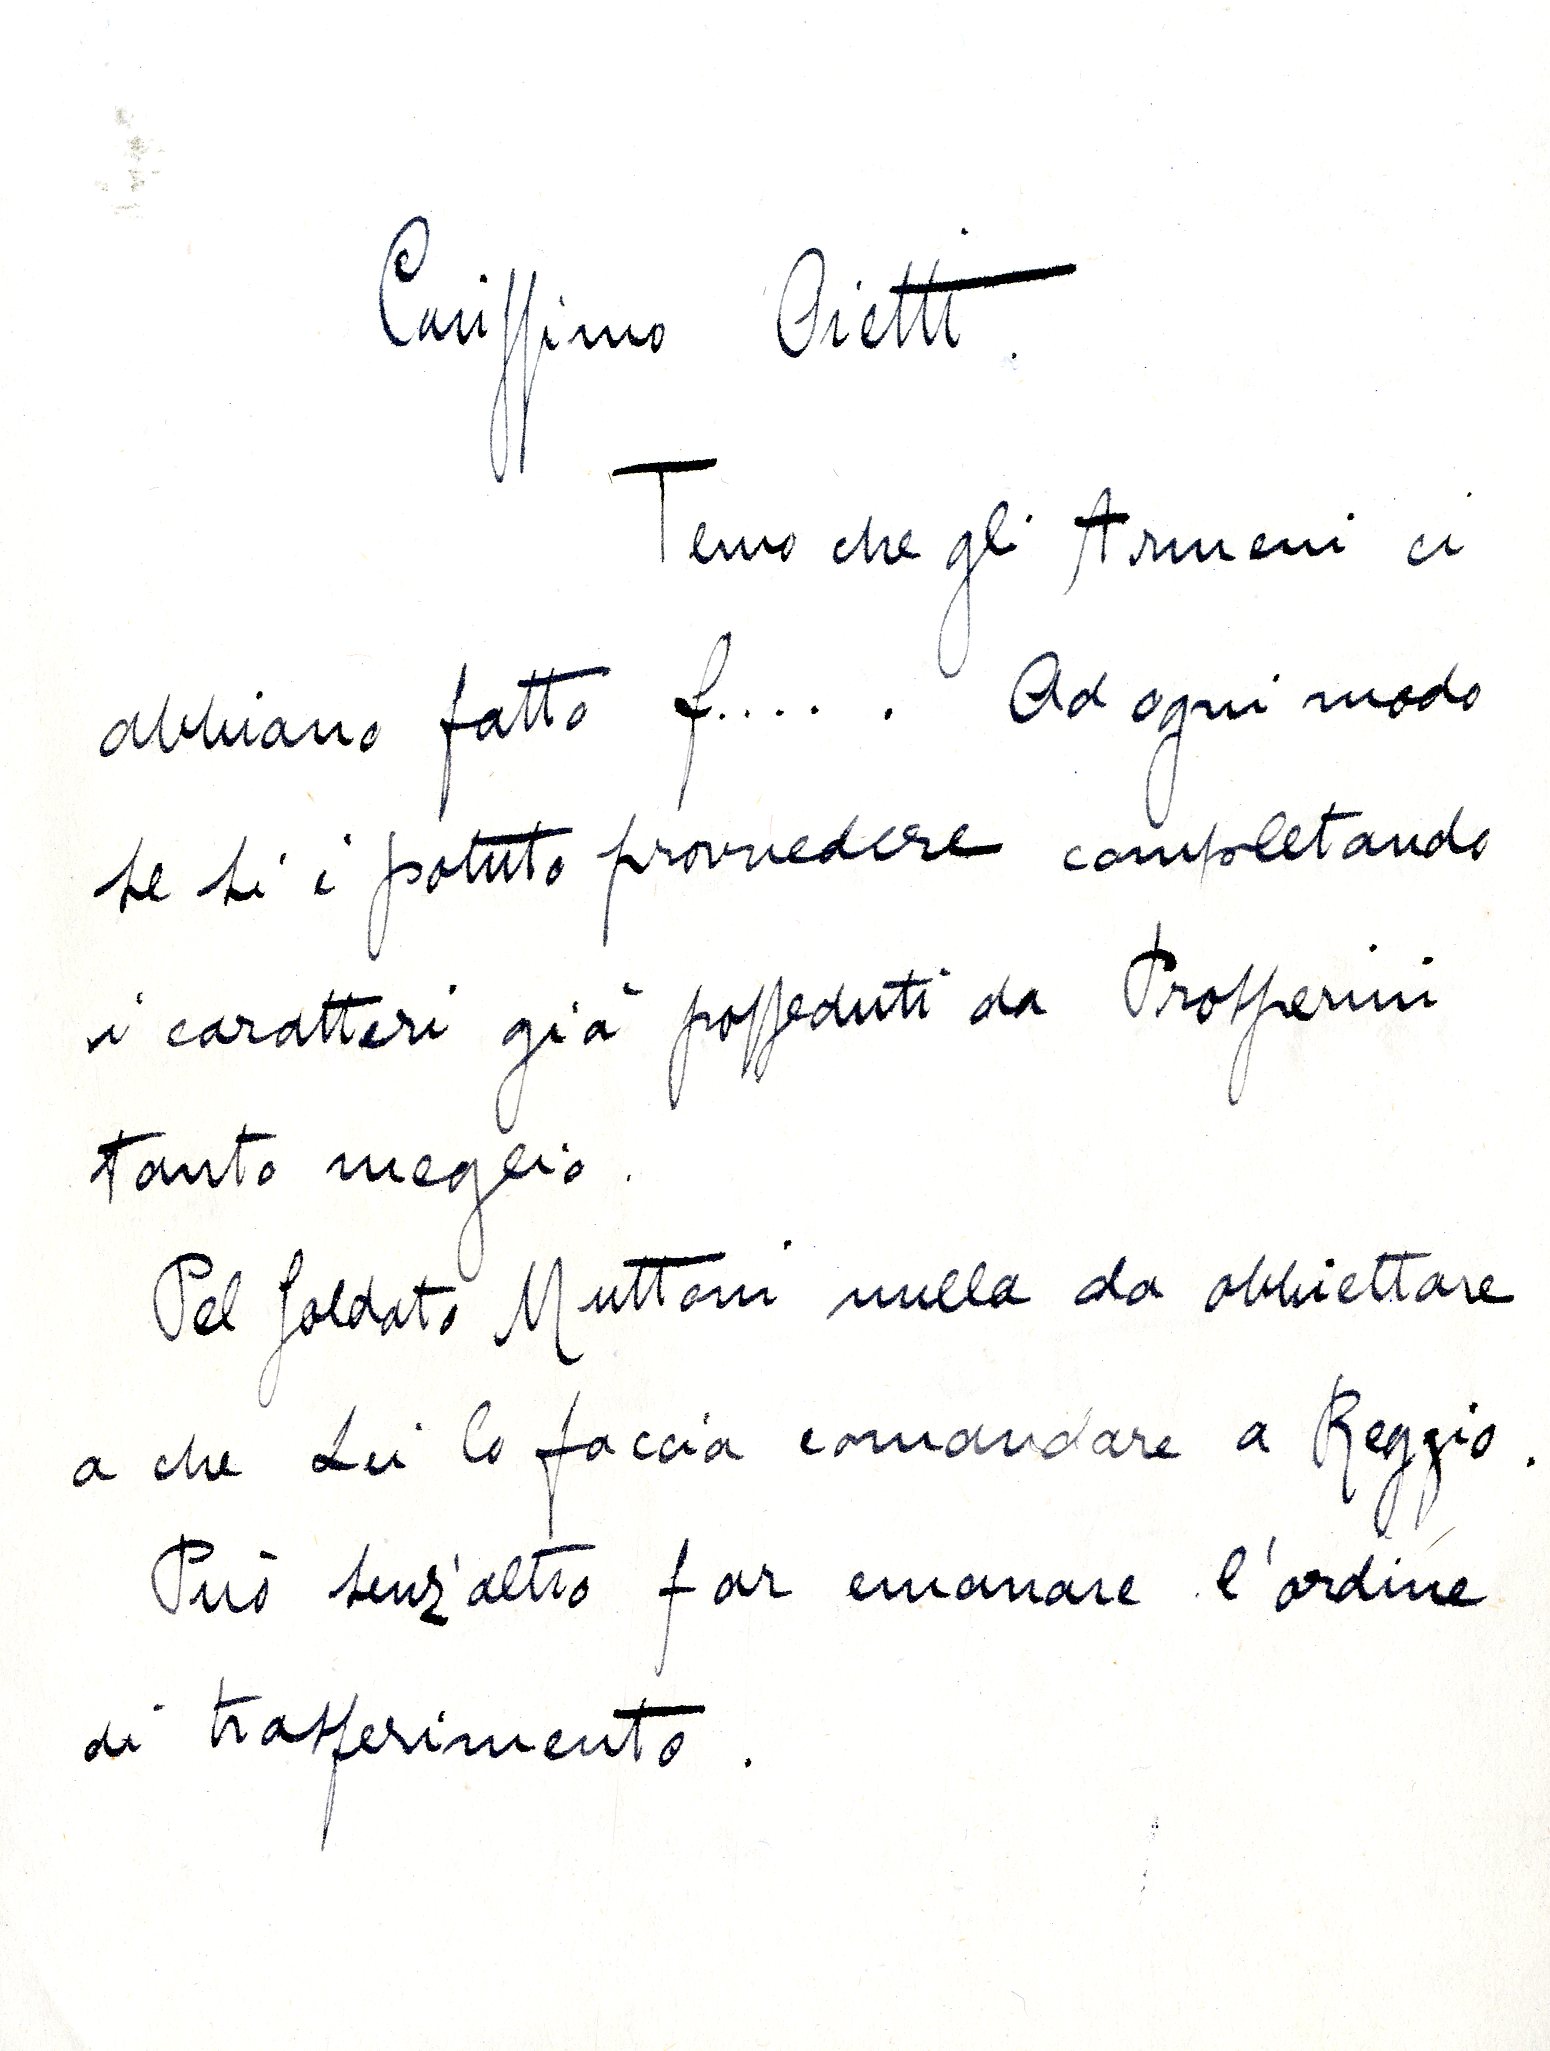 Carissimo Ojetti.
Temo che gli Armeni ci
abbiano fatto f..... Ad ogni modo
se si è potuto provvedere completando
i caratteri già posseduti da Prosperini
tanto meglio.
Pel soldato Muttoni nulla da obbiettare
a che Lei lo faccia comandare a Reggio.
Può senz'altro far emanare l'ordine
di trasferimento.